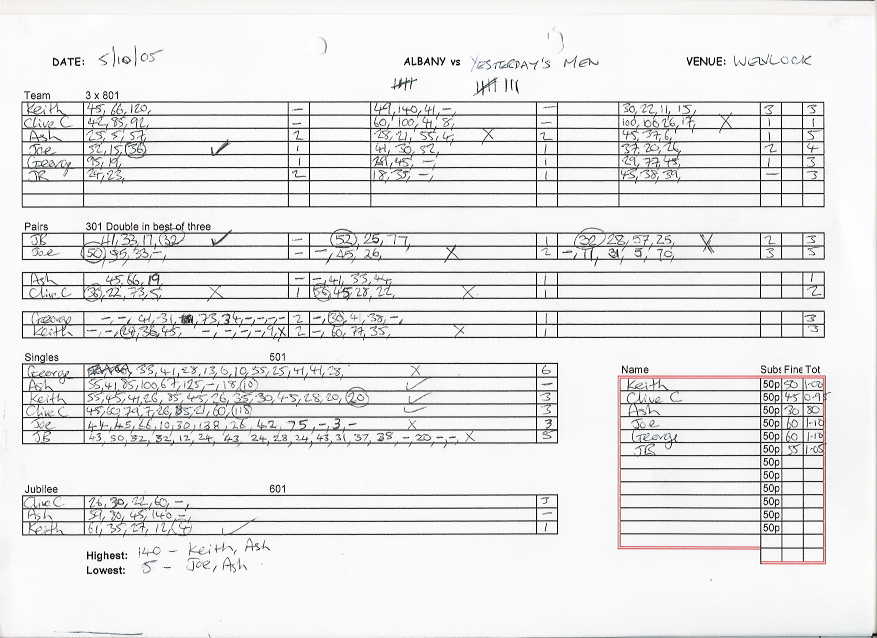 DATE: 5/10/05 ALBANY vs YESTERDAY'S MEN VENUE: WENLOCK
Team 3 x 801
Keith 45, 66, 120, – 49, 140, 41, –, – 30, 22, 11, 15, 3 3
Clive C 42, 85, 92, – 60, 100, 41, 8, – 100, 106, 26, 17, X 1 1
Ash 25, 5, 57, 2 25, 21, 55, 4, X 2 45, 37, 6, 1 5
Joe 52, 15, (36) ✓ 1 41, 30, 52, 1 37, 20, 26, 2 4
George 95, 19, 1 45, –, 1 29, 77, 45, 1 3
JB 24, 23, 2 18, 35, –, 1 45, 38, 39, – 3
Pairs 301 Double in best of three
JB 41, 33, 17, (32) ✓ – (52), 25, 77, 1 (32) 28, 57, 25, X 2 3
Joe (50) 95, 33, –, – –, 45, 26, X 2 –, 11, 5, 70, 3 5
Ash 45, 66, 19, – –, 41, 33, 44, 1 1
Clive C 22, 73, 5, X 1 45, 28, 22, X 1 2
George –, –, 41, 31, 73, 34, –, –, –, – 2 –, (30), 41, 38, –, 1 3
Keith –, –, 36, 45, –, –, –, 9, X 2 –, 60, 77, 35, X 1 3
Singles 501
George 33, 41, 28, 13, 6, 10, 55, 25, 41, 41, 28, X 6
Ash 55, 41, 85, 100, 67, 125, –, 18, (10) ✓ –
Keith 55, 45, 41, 26, 85, 45, 26, 35, 30, 45, 28, 20, (20) ✓ 3
Clive C 45, 60, 79, 7, 26, 85, 21, 60, (118) ✓ 3
Joe 44, 45, 66, 10, 30, 138, 26, 42, 75, –, 3, – X 3
JB 43, 50, 82, 32, 12, 24, 43, 24, 28, 24, 43, 31, 37, 38, –, 20, –, –, X 5
Name Subs Fine Tot
Keith 50p 50 1·00
Clive C 50p 45 0·95
Ash 50p 30 80
Joe 50p 60 1·10
George 50p 60 1·10
JB 50p 55 1·05
50p
50p
50p
50p
50p
50p
Jubilee 601
Clive C 26, 30, 22, 60, –, 3
Ash 59, 80, 45, 140, –, –
Keith 61, 35, 27, 12, (4) ✓ 1
Highest: 140 – Keith, Ash
Lowest: 5 – Joe, Ash